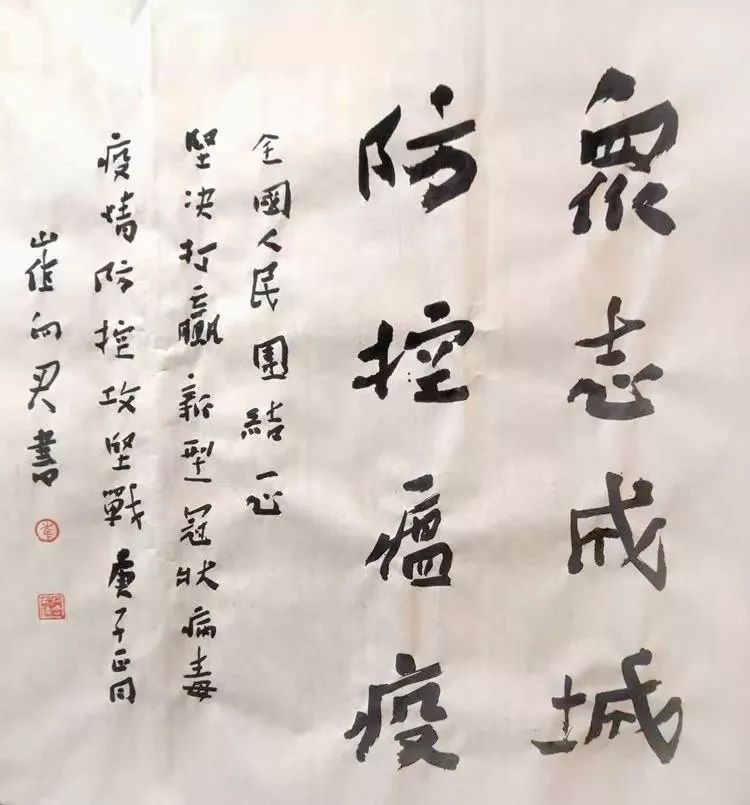 眾志成城
防控瘟疫
全國人民團結一心
堅决打贏新型冠狀病毒
疫情防控攻堅戰 庚子正月
崔向君書